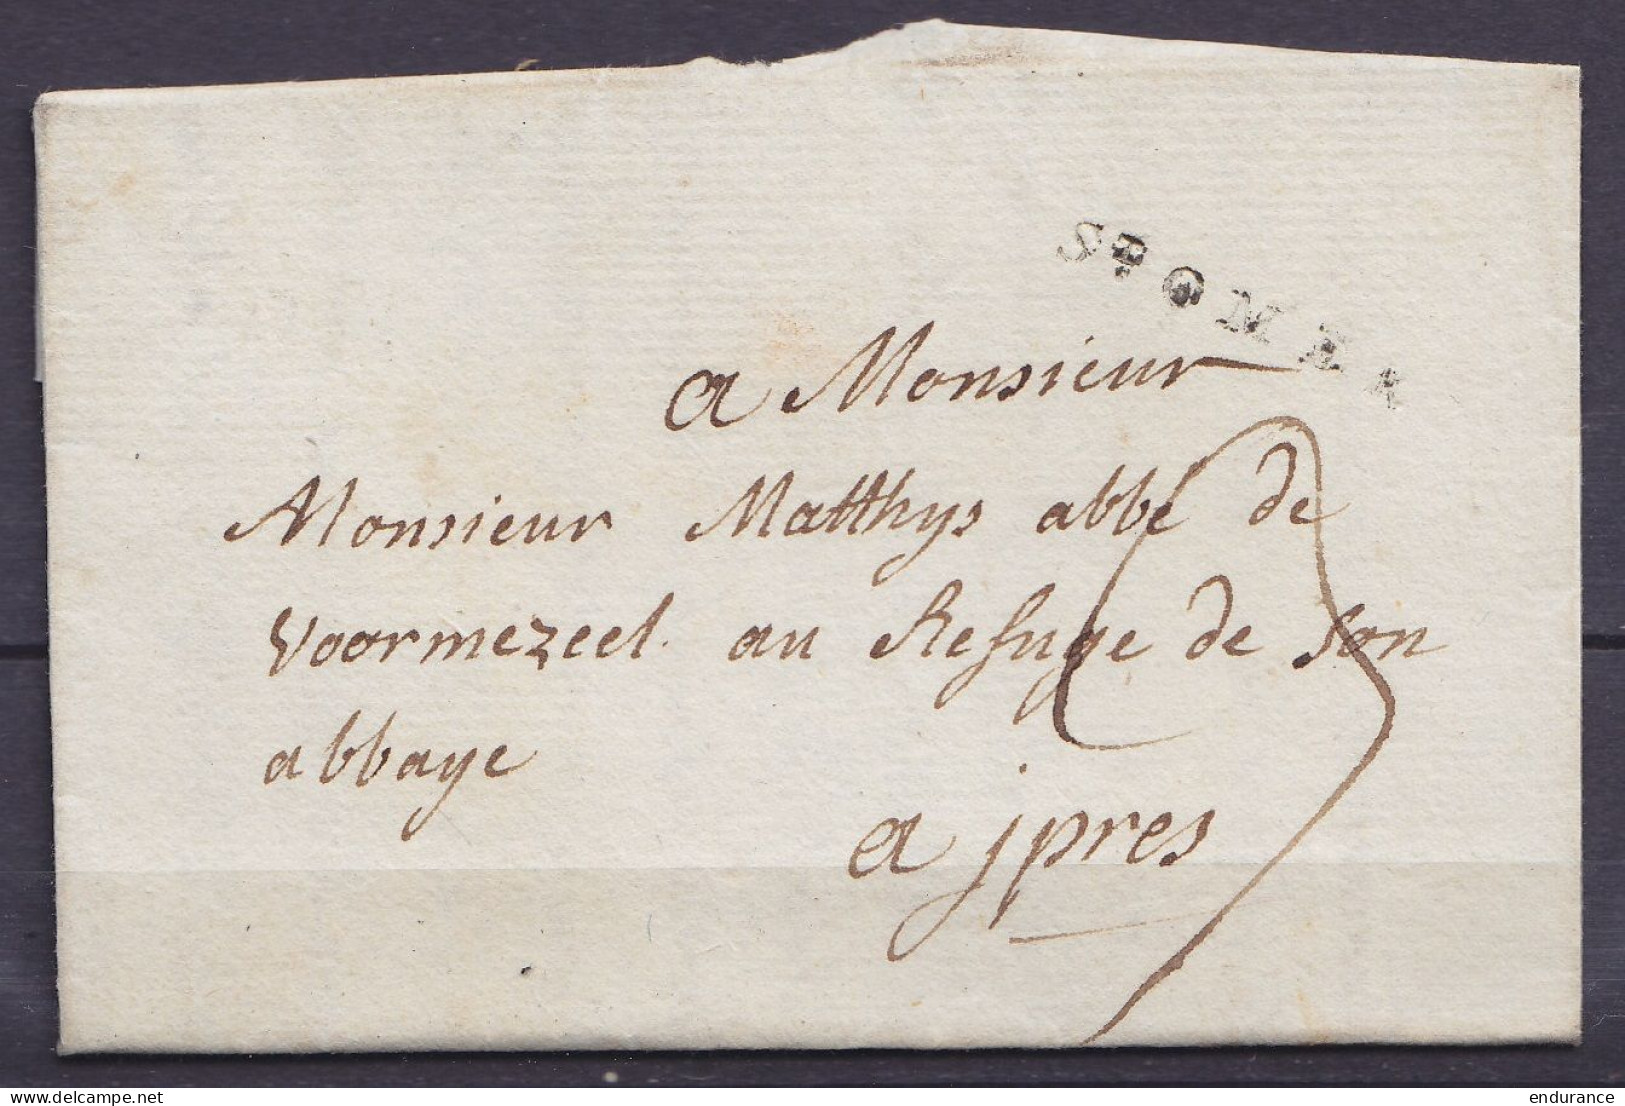 St OMER
a Monsieur
Monsieur Matthys abbé de
Voormezeel. au Refuge de son
abbaye
a jpres
delcampe.net
endurance